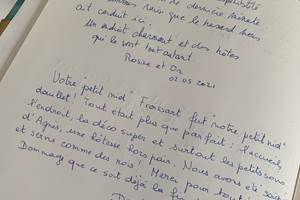 de dernière minute
ravis que le hasard nous
ait conduit ici.
Un endroit charmant et des hôtes
qui le sont tout autant
Rosine et
02.05.2021
Votre "petit nid" Froissart fut "notre petit nid"
douillet! Tout était plus que parfait: l'accueil,
l'endroit, la déco super et surtout les petits soins
d'Agnès, une hôtesse hors pair. Nous avons été soignés
et servis comme des rois! Merci pour tout!
Dommage que ce soit déjà la fin